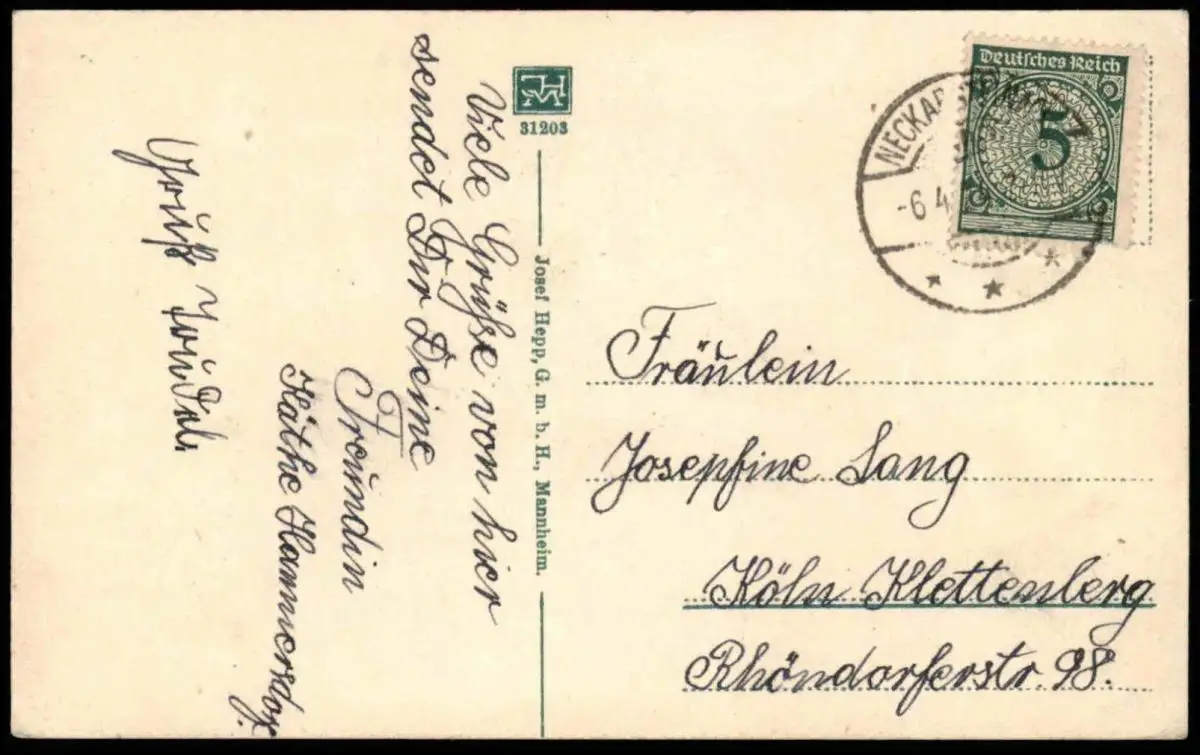 Viele Grüße von hier
sendet Dir Deine
Freundin
Käthe Hammersdorf.
Gruß
HM
31203
Josef Hepp, G. m. b. H., Mannheim.
Deutsches Reich
5
-6 4
Fräulein
Josepfine Lang
Köln Klettenberg
Rhöndorferstr. 98.